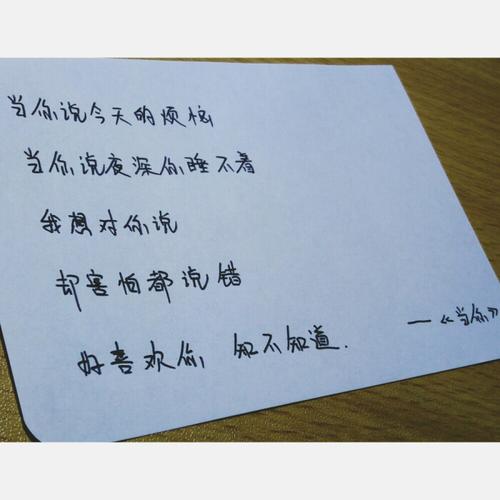 当你说今天的烦恼
当你说夜深你睡不着
我想对你说
却害怕都说错
好喜欢你 知不知道.
—《当你》